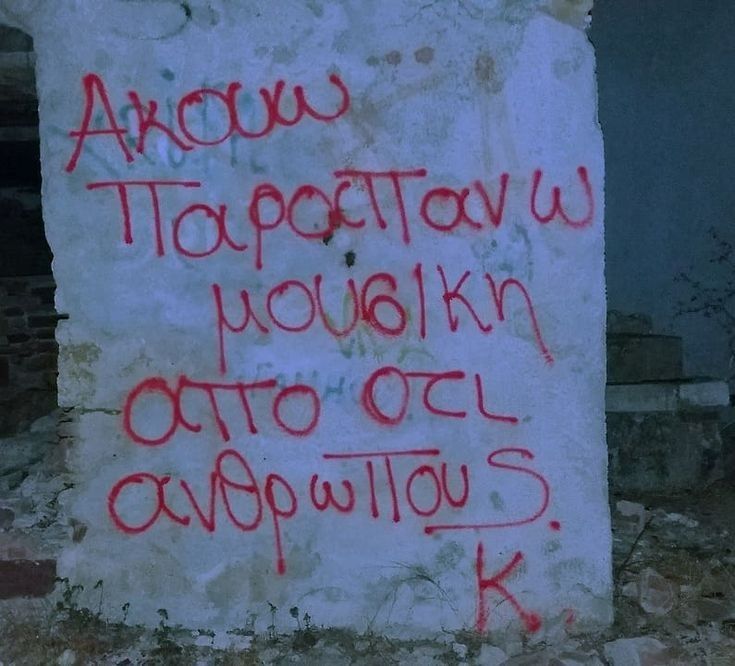 Ακουω
παραπανω
μουσικη
απο οτι
ανθρωπους.
Κ.